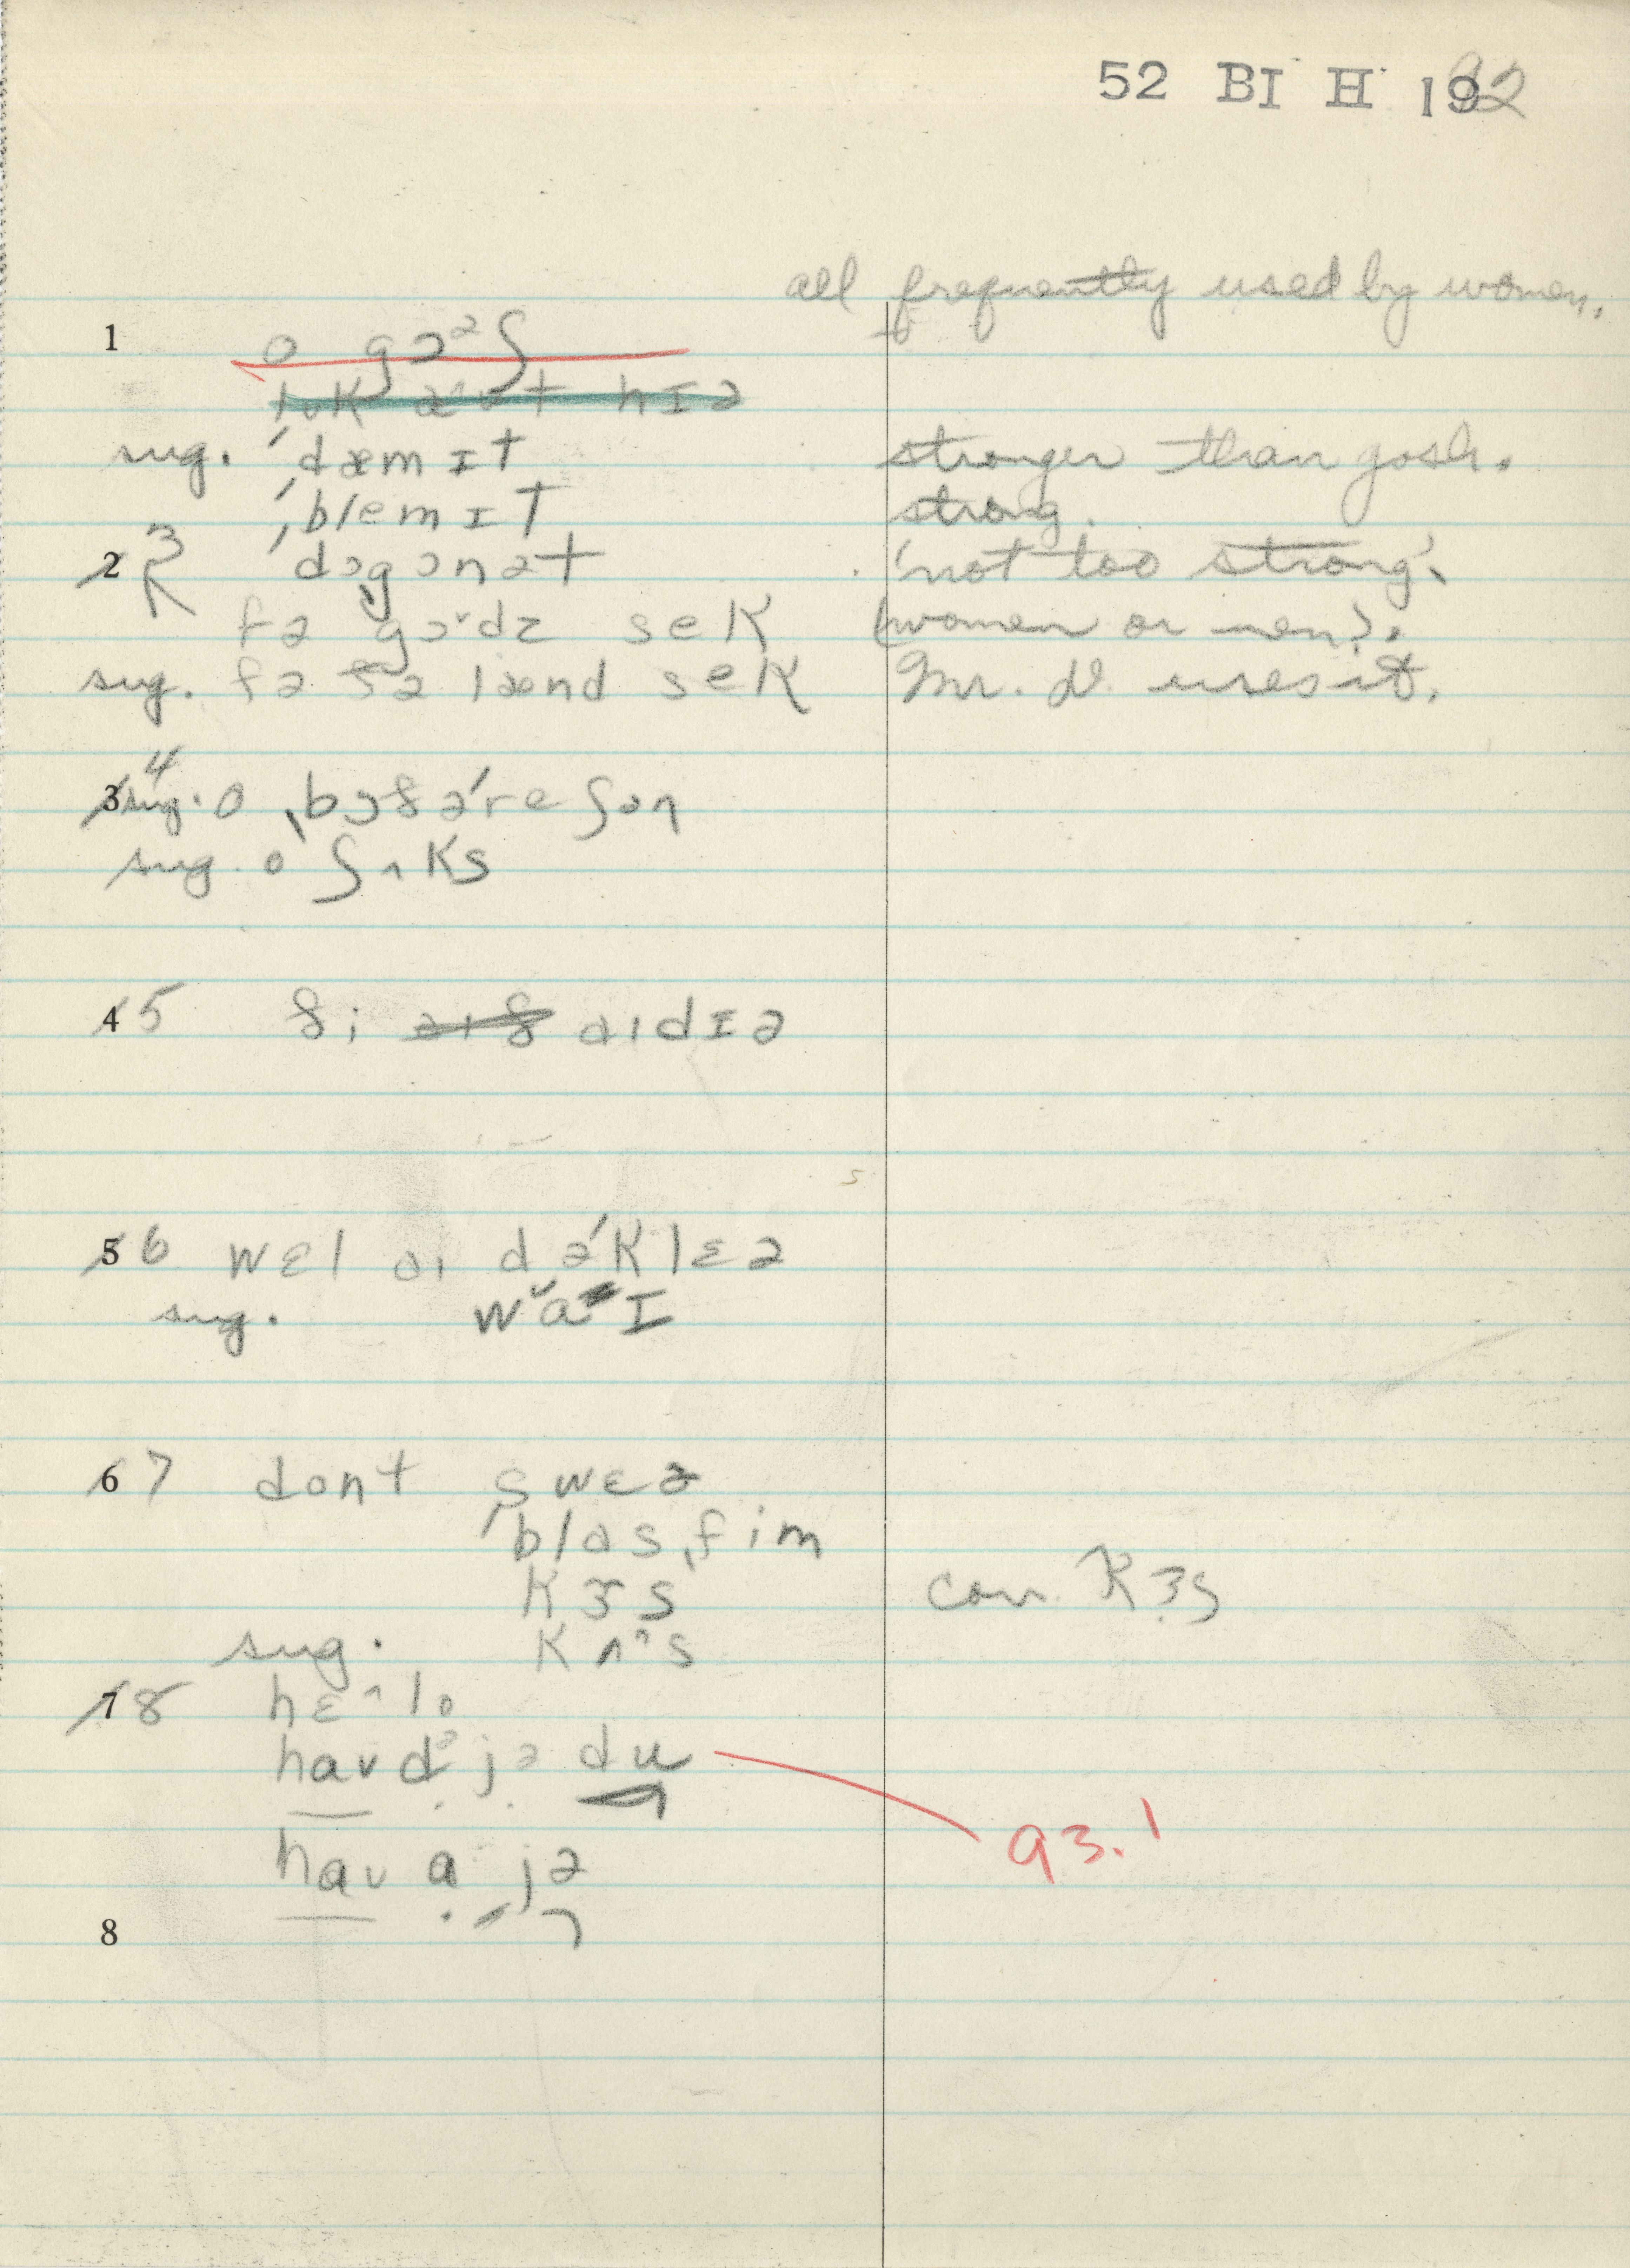 52 BI H 192
all frequently used by women.
1 o gɔᵊʃ
lʊk aʊt hɪə
sug. ˈdæmɪt stronger than gosh.
ˈblemɪt strong.
2 3 ˈdɔˌgɔnət 'not too strong'.
fə gɔˇdz sek (women or men).
sug. fə ðə lænd sek Mr. D. uses it.
3 4 sug. o ˌbɔðəˈreʃən
sug. o ʃʌks
4 5 ði aɪð aɪdɪə
5 6 wɛl aɪ dəˈklɛə
sug. wˇaɪ
6 7 dont swɛə
ˈblasˌfim
kɝs con. kɜs
sug. kʌˆs
7 8 hɛˆlo
haʊdᵊ jə du 93.1
haʊ a jə
8